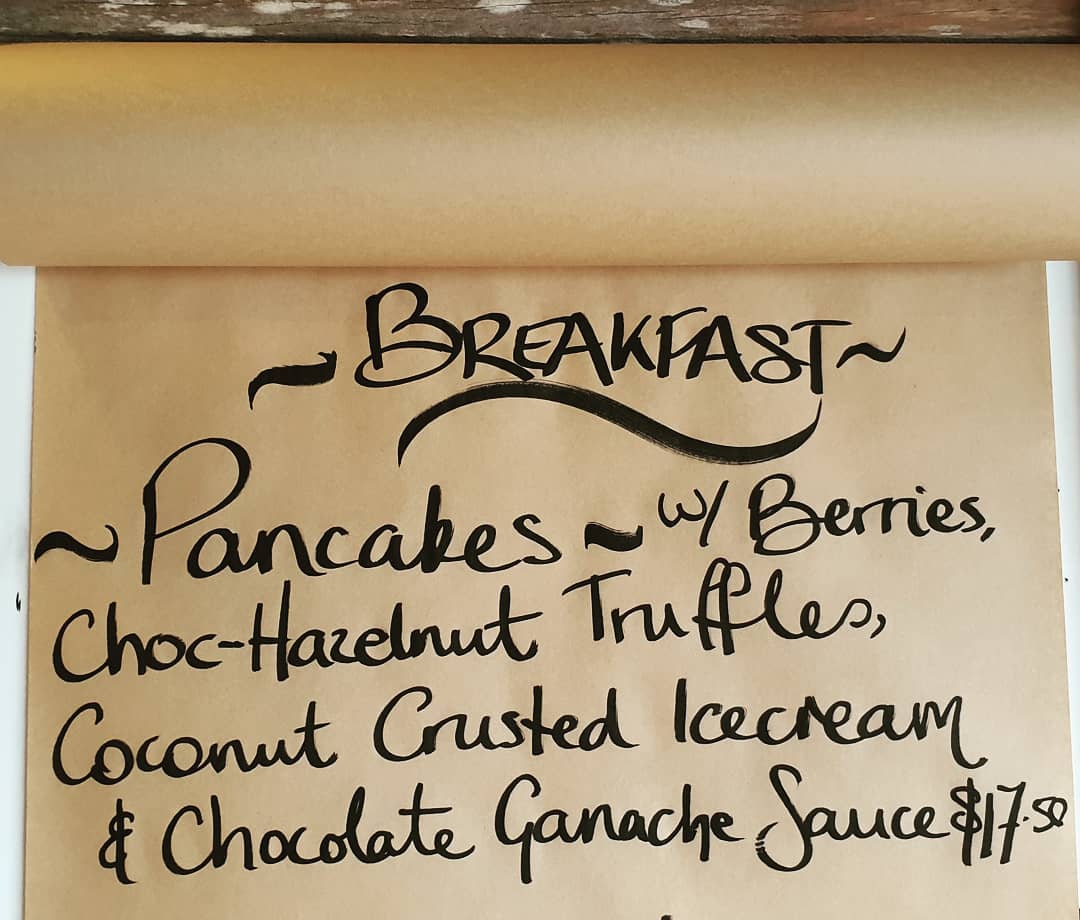 ~ BREAKFAST ~
~ Pancakes ~ w/ Berries,
Choc-Hazelnut Truffles,
Coconut Crusted Icecream
& Chocolate Ganache Sauce $17.50